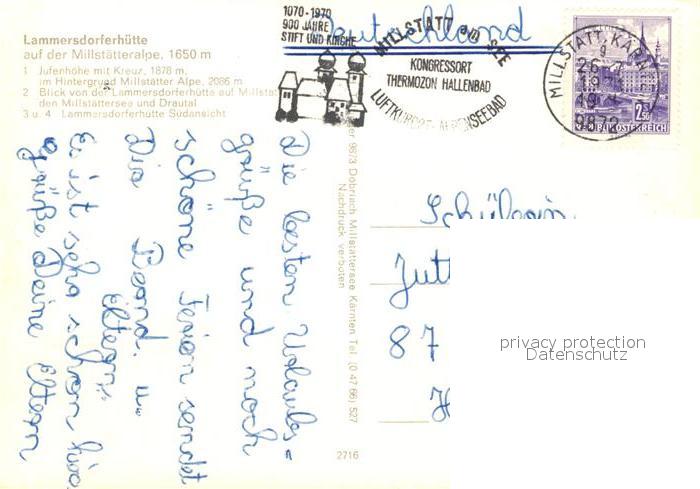 Lammersdorferhütte
auf der Millstätteralpe, 1650 m
1 Jufenhöhe mit Kreuz, 1878 m,
im Hintergrund Millstätter Alpe, 2086 m
2 Blick von der Lammersdorferhütte auf Millsta
den Millstättersee und Drautal
3 u. 4 Lammersdorferhütte Südansicht
1070-1970
900 JAHRE
STIFT UND KIRCHE
Deutschland
MILLSTATT am SEE
KONGRESSORT
THERMOZON HALLENBAD
LUFTKURORT - ALPENSEEBAD
MILLSTATT, KÄRNT
9872
2.50
REPUBLIK ÖSTERREICH
9873 Döbriach Millstättersee Kärnten Tel. (0 47 66) 527
Nachdruck verboten
Die besten Urlaubs-
grüße und noch
schöne Ferien sendet
Dir Bernd. u.
Eltern.
Es ist sehr schön hier
Grüße Deine Eltern
Schülerin
Jutt
87
2716
privacy protection
Datenschutz